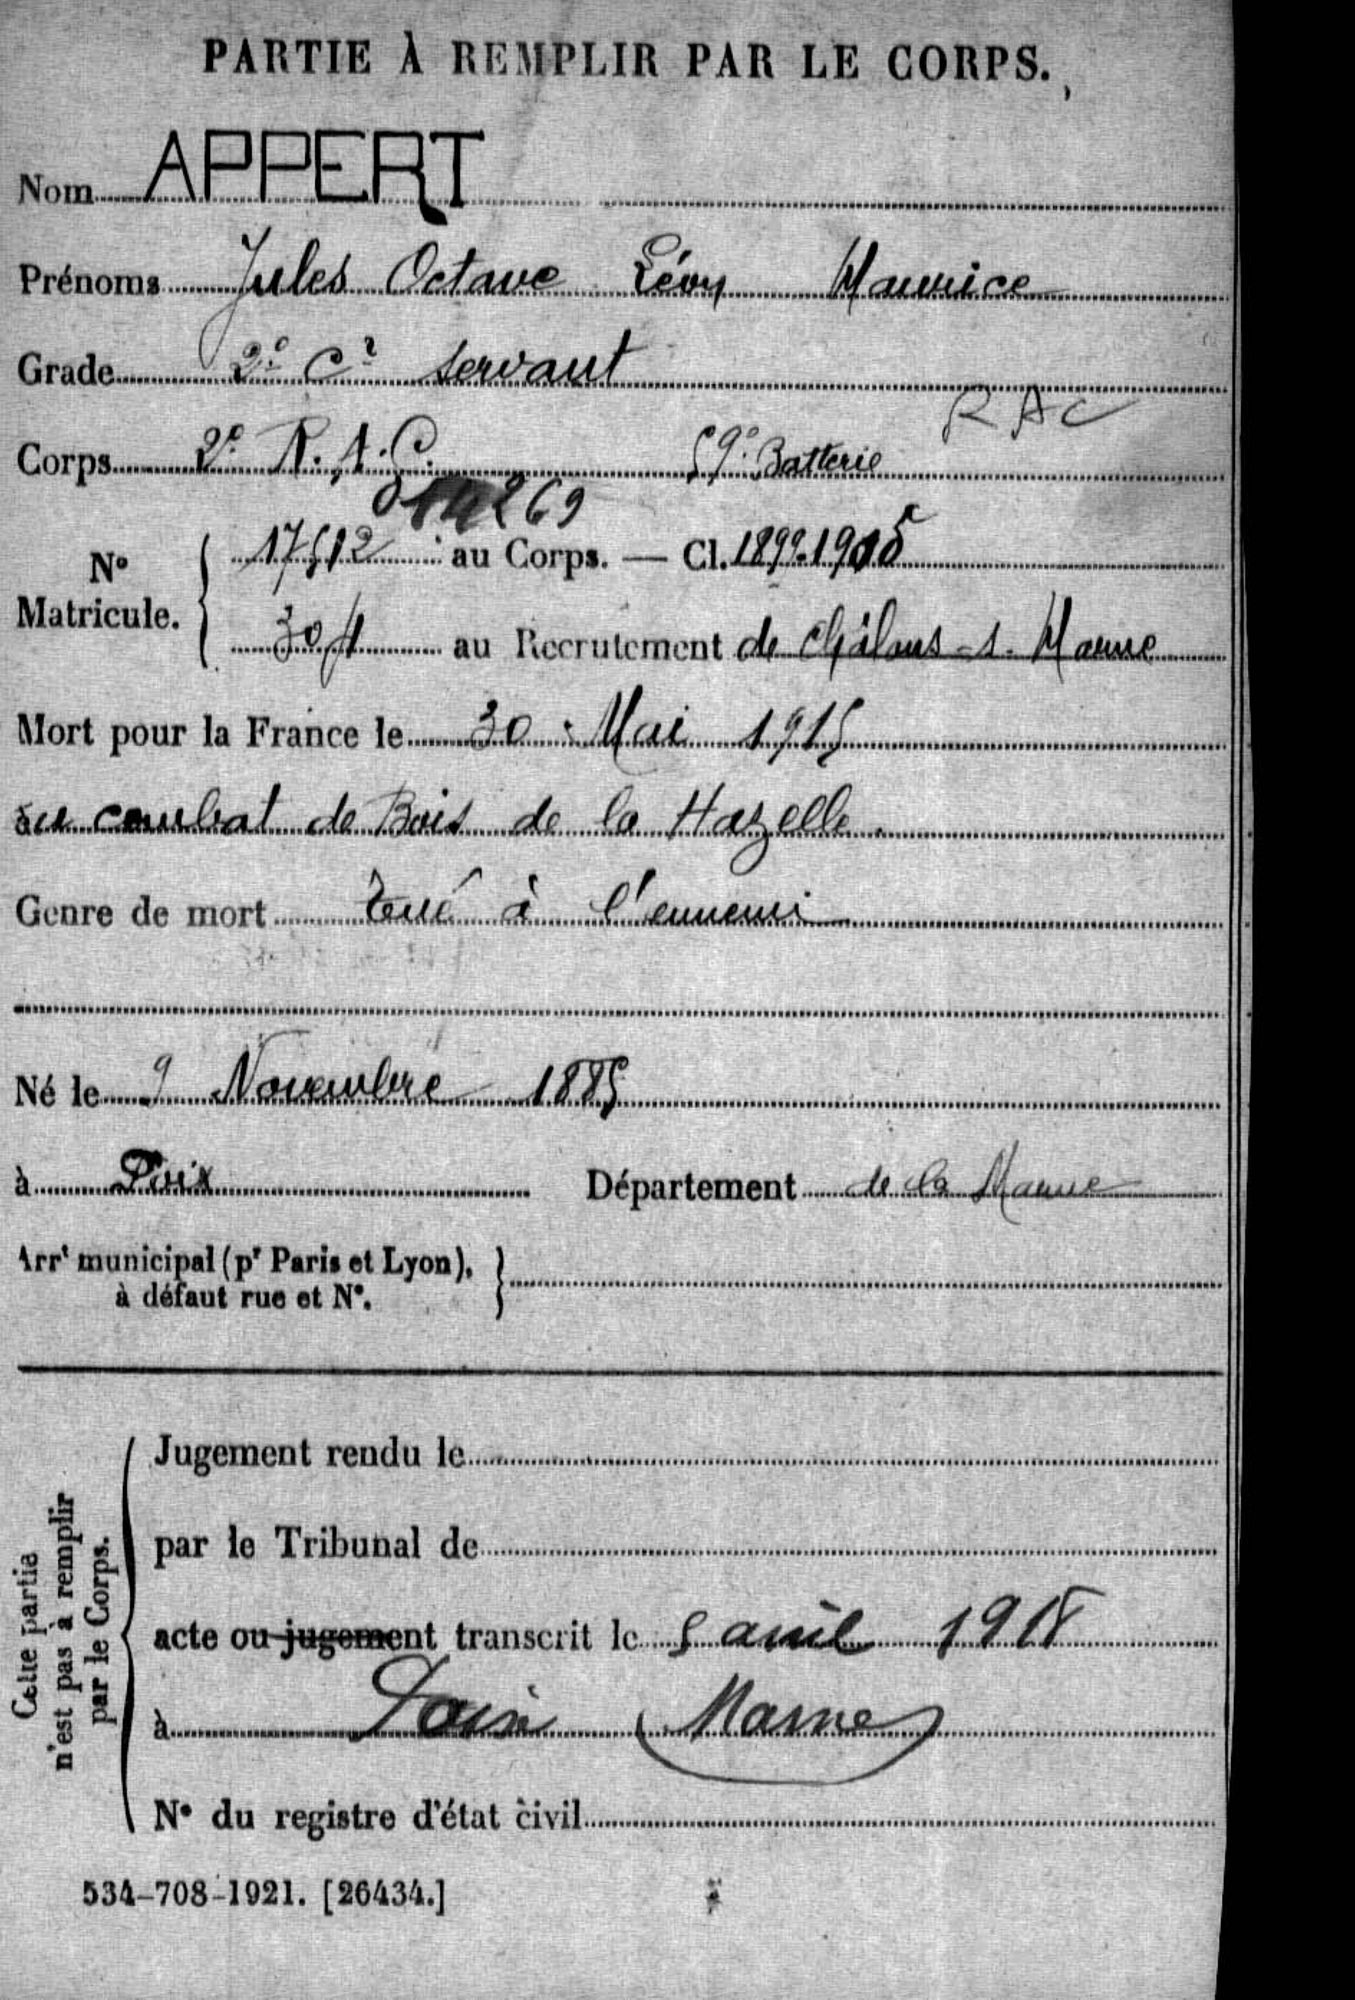 PARTIE À REMPLIR PAR LE CORPS.
Nom APPERT
Prénoms Jules Octave Lévy Maurice
Grade 2e Cr servant
RAC
Corps 2e R.A.C. 59e Batterie
14269
No Matricule. 17512 au Corps. — Cl. 1899.1905
304 au Recrutement de Châlons-s-Marne
Mort pour la France le 30 Mai 1915
au combat de Bois de la Hazelle.
Genre de mort tué à l'ennemi
Né le 9 Novembre 1885
à Poix Département de la Marne
Arrt municipal (pr Paris et Lyon),
à défaut rue et No.
Cette partie
n'est pas à remplir
par le Corps.
Jugement rendu le
par le Tribunal de
acte ou jugement transcrit le 5 avril 1918
à Poix (Marne)
No du registre d'état civil
534-708-1921. [26434.]